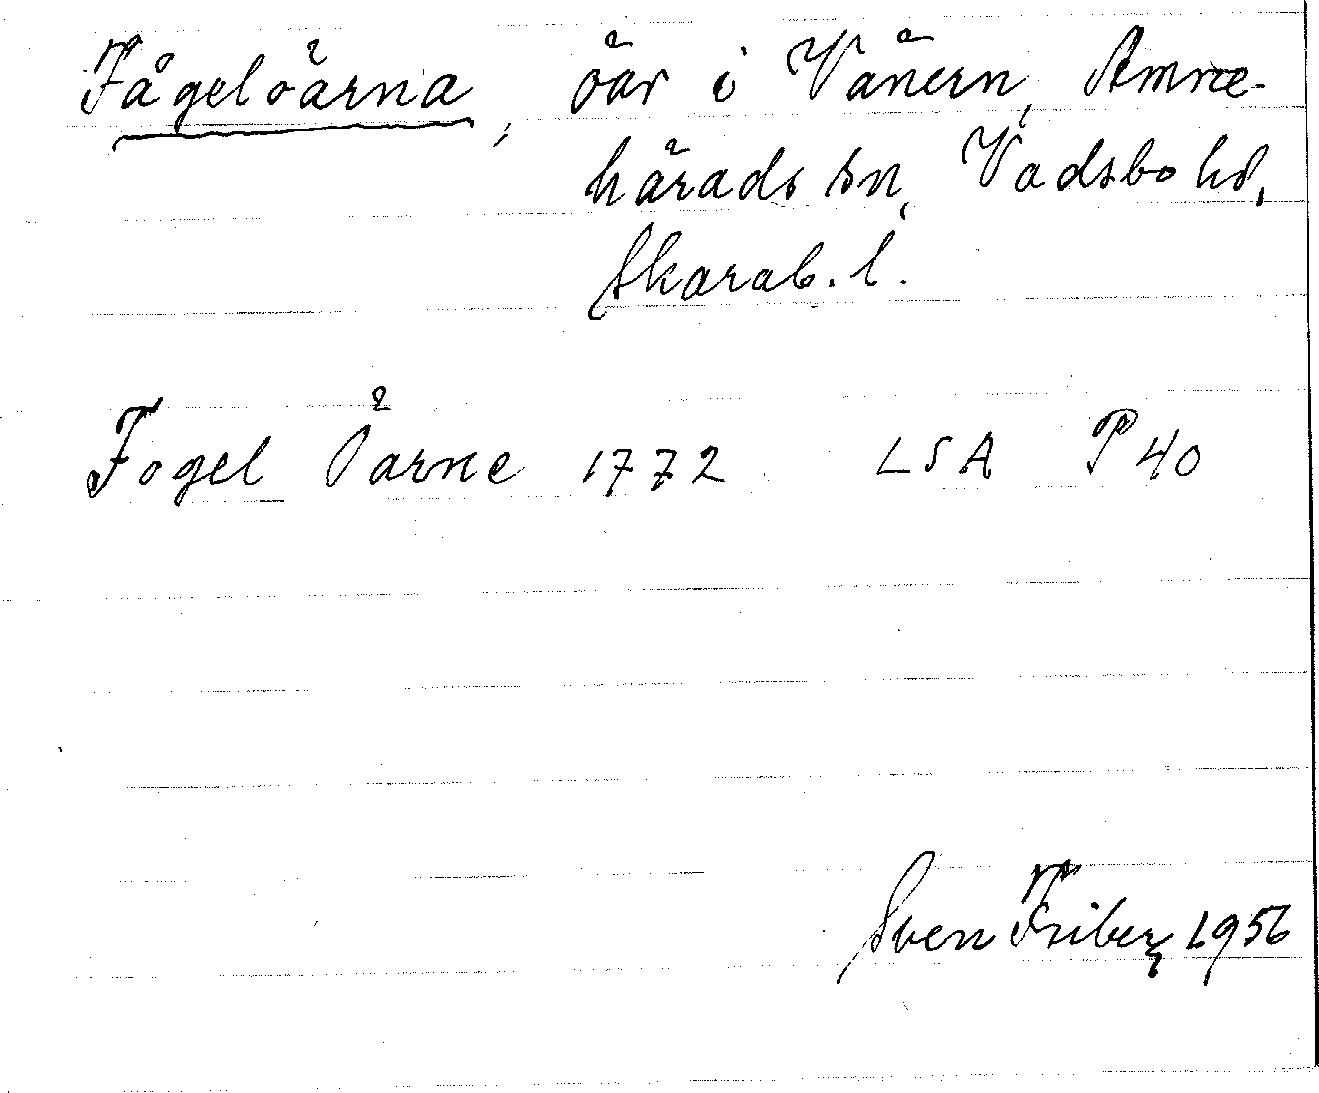 Fågelöarna, öar i Vänern, Amne-
härads sn, Vadsbo hd,
Skarab. l.
Fogel Öarne 1772 LSA P 40
Sven Friberg 1956